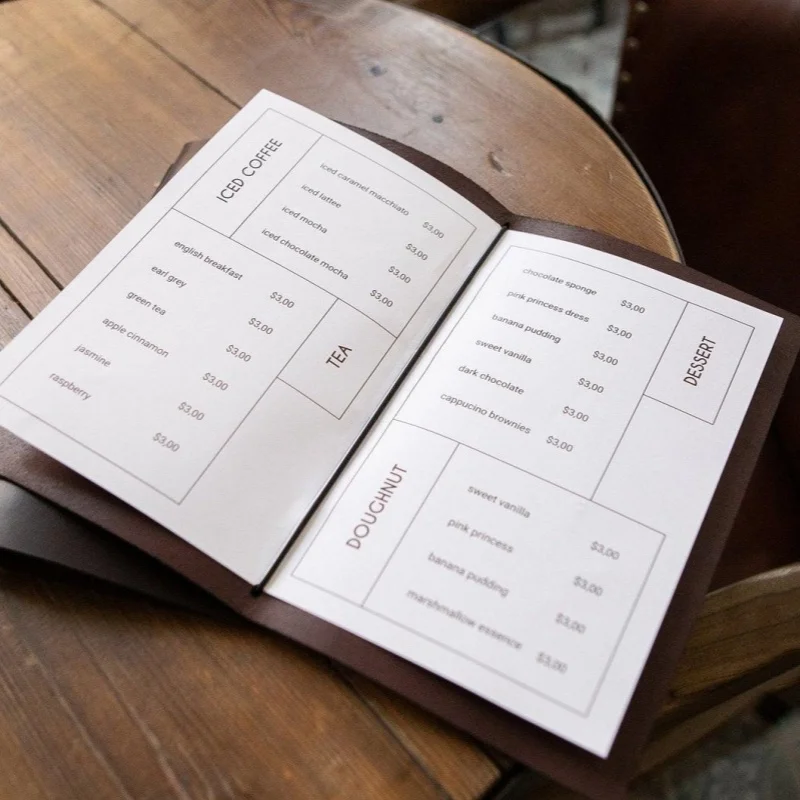 ICED COFFEE
iced caramel macchiato $3,00
iced lattee $3,00
iced mocha $3,00
iced chocolate mocha $3,00
TEA
english breakfast $3,00
earl grey $3,00
green tea $3,00
apple cinnamon $3,00
jasmine $3,00
raspberry $3,00
DESSERT
chocolate sponge $3,00
pink princess dress $3,00
banana pudding $3,00
sweet vanilla $3,00
dark chocolate $3,00
cappucino brownies $3,00
DOUGHNUT
sweet vanilla $3,00
pink princess $3,00
banana pudding $3,00
marshmallow essence $3,00